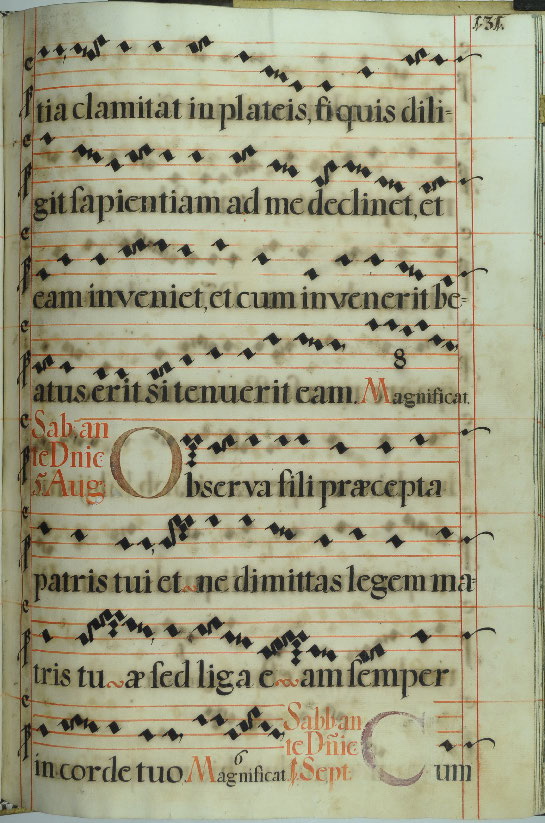 131.
tia clamitat in plateis, si quis dili-
git sapientiam ad me declinet, et
eam inveniet, et cum invenerit be-
8
atus erit si tenuerit eam. Magnificat.
Sab. an
te Dnic
Aug. Observa fili præcepta
patris tui et ne dimittas legem ma-
tris tu~æ sed liga e~am semper
Sabb an
te Dñic
6
in corde tuo. Magnificat. 1. Sept. Cum